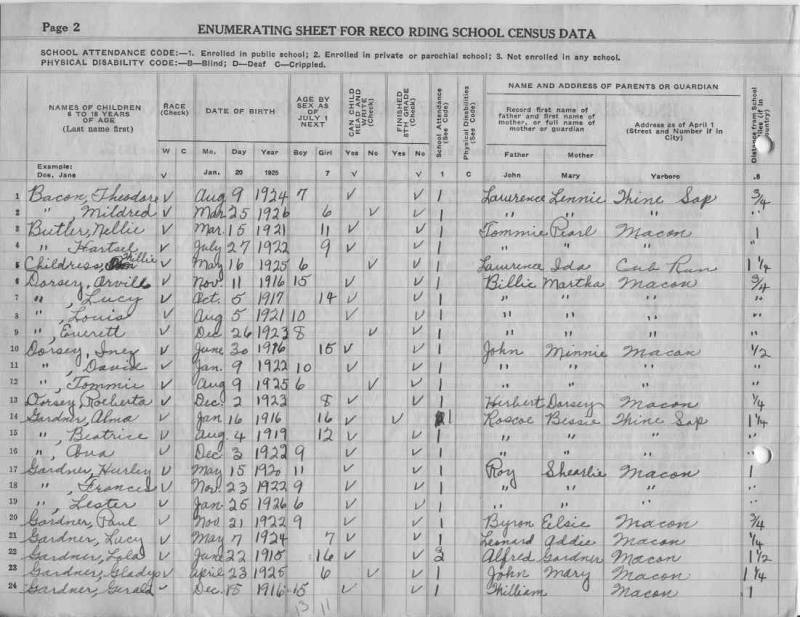 Page 2
ENUMERATING SHEET FOR RECO RDING SCHOOL CENSUS DATA
SCHOOL ATTENDANCE CODE:—1. Enrolled in public school; 2. Enrolled in private or parochial school; 3. Not enrolled in any school.
PHYSICAL DISABILITY CODE:—B—Blind; D—Deaf C—Crippled.
NAMES OF CHILDREN 6 TO 18 YEARS OF AGE (Last name first) RACE (Check) DATE OF BIRTH AGE BY SEX AS OF JULY 1 NEXT CAN CHILD READ AND WRITE (Check) FINISHED 8TH GRADE (Check) School Attendance (See Code) Physical Disabilities (See Code) NAME AND ADDRESS OF PARENTS OR GUARDIAN Distance from School
Record first name of father and first name of mother, or full name of mother or guardian Address as of April 1 (Street and Number if in City)
W C Mo. Day Year Boy Girl Yes No Yes No Father Mother
Example: Doe, Jane V Jan. 20 1925 7 V V 1 C John Mary Yarboro .8
1 Bacon, Theodore V Aug 9 1924 7 V V 1 Lawrence Lennie Thine Sap 3/4
2 " , Mildred V Mar 25 1926 6 V V 1 " " "
3 Butler, Nellie V Mar. 15 1921 11 V V 1 Tommie Pearl Macon 1
4 " Hartsel V July 27 1922 9 V V 1 " " " "
5 Childress, Willie V May 16 1925 6 V V 1 Lawrence Ida Cub Run 1 1/4
6 Dorsey, Orville V Nov 11 1916 15 V V 1 Billie Martha Macon 3/4
7 " , Lucy V Oct. 5 1917 14 V V 1 " " " "
8 " , Louis V Aug 5 1921 10 V V 1 " " " "
9 " , Everett V Dec 26 1923 8 V V 1 " " " "
10 Dorsey, Inez V June 30 1916 15 V V 1 John Minnie Macon 1/2
11 " , David V Jan. 9 1922 10 V V 1 " " " "
12 " , Tommie V Aug 9 1925 6 V V 1 " " " "
13 Dorsey, Roberta V Dec. 2 1923 8 V V 1 Herbert Dorsey Macon 1/4
14 Gardner, Alma V Jan 16 1916 16 V V 1 Roscoe Bessie Thine Sap 1 1/4
15 " , Beatrice V Aug. 4 1919 12 V V 1 " " " "
16 " , V Dec 3 1922 9 V V 1 " " " "
17 Gardner, Hurley V May 15 1920 11 V V 1 Roy Shearlie Macon 1
18 " , Frances V Nov. 23 1922 9 V V 1 " " " "
19 " , Lester V Jan 25 1926 6 V V 1 " "
20 Gardner, Paul V Nov 21 1922 9 V V 1 Byron Elsie Macon 3/4
21 Gardner, Lucy V May 7 1924 7 V V 1 Leonard Addie Macon 1/4
22 Gardner, Lola V June 22 1915 16 V V 3 Alfred Gardner Macon 1 1/2
23 Gardner, Gladys V April 23 1925 6 V V 1 John Mary Macon 1 1/4
24 Gardner, Gerald V Dec. 15 1916 15 V V 1 William Macon 1
13 11